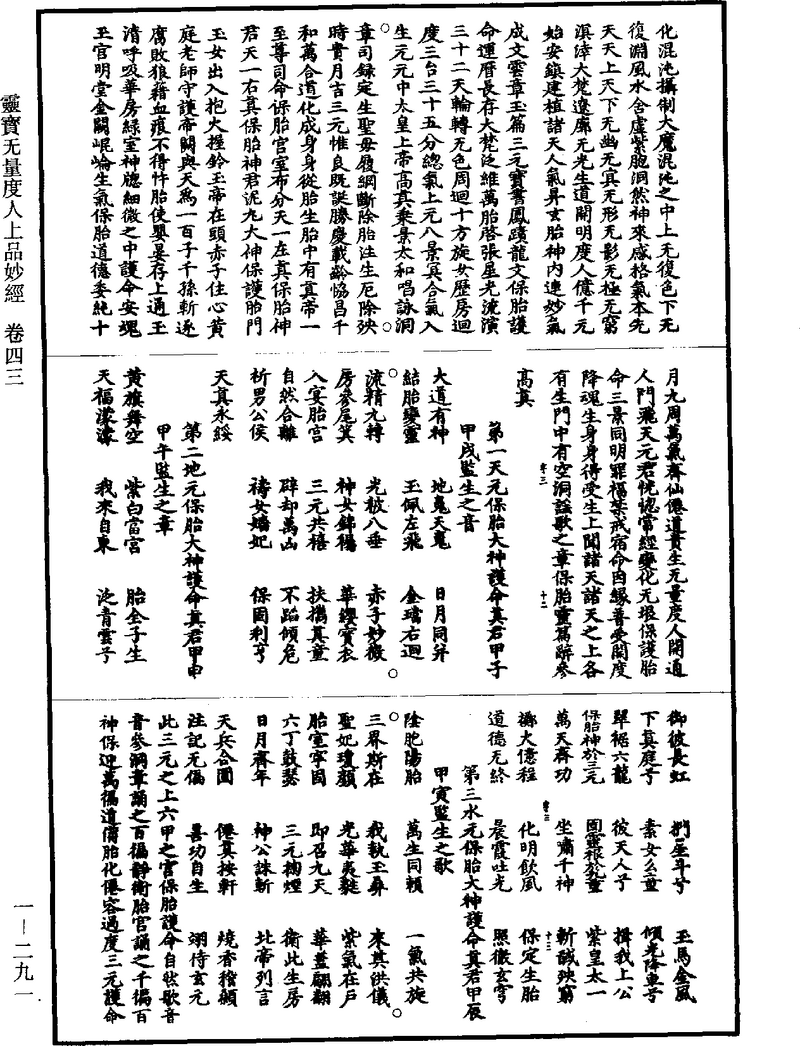 化混沌攝制大魔混沌之中上无復色下无
復淵風水含虛紫胞洞然神來感格氣本先
天天上天下无幽无冥无形无影无極无窮
溟涬大梵遼廓无光生道開明度人億千元
始安鎮建植諸天人氣昇玄胎神內連妙氣
成文雲章玉篇三元寶書鳳蹟龍文保胎護
命運曆長存大梵泛維萬胎啓張星光流演
三十二天輪轉无色周迴十方旋女歷房迴
度三台三十五分總氣上元八景冥合氣入
生元元中太皇上帝高真乘景太和唱詠洞
章司錄定生聖母履綱斷除胎注生厄除殃
時貴月吉三元惟良既誕勝慶載齡恊昌千
和萬合道化成身身從胎生胎中有真帝一
至尊司命保胎官室布分天一左真保胎神
君天一右真保胎神君泥九大神保護胎門
玉女出入抱火握鈴玉帝在頭赤子住心黄
庭老師守護帝關與天爲一百子千孫斬逐
腐敗狼藉血痕不得忤胎使嬰晏存上通玉
清呼吸華房緑室神牕細微之中護命安魂
玉官明堂金闕崐崘生氣保胎道德委純十
月九周萬氣齊仙僊道貴生无量度人開通
人門飛天元君恍惚常經變化无垠保護胎
命三景同明罪福禁戒宿命因緣善受開度
降魂生身身得受生上聞諸天諸天之上各
有生門中有空洞謡歌之章保胎靈篇辭參
高真
卷三
十二
第一天元保胎大神護命真君甲子
甲戌監生之音
大道有神 地魂天魂 日月同并
結胎變靈 玉佩左飛 金璫右迴
流精九轉 光被八垂 赤子妙微
房參尾箕 神女錦襦 華纓寶衣
入安胎宫 三元共禧 扶攜真童
自然合離 辟却萬凶 不蹈傾危
祈男公侯 禱女嬪妃 保固利亨
天真永綏
第二地元保胎大神護命真君甲申
甲午監生之章
黄旗舞空 紫白當宫 胎全子生
天福濛濛 我來自東 泛青雲兮
御彼長虹 捫星斗兮 玉馬金風
下真庭兮 素女幺童 傾光降車兮
翠裾六龍 彼天人兮 揖我上公
保胎神於三元 固靈根於童 紫皇太一
萬天齊功 坐嘯千神 斬馘殃窮
卷三
十三
擲大億程 化明飲風 保定生胎
道德无終 晨霞吐光 照徹玄穹
第三水元保胎大神護命真君甲辰
甲寅監生之歌
陰胞陽胎 萬生同賴 一氣共旋
三界斯在 我執玉彝 來其洪儀
聖妃瓊顔 光華夷䴡 紫氣在戶
胎室寧固 即召九天 華蓋翩翻
六丁鼓瑟 三元捧煙 衛此生房
日月齊年 神公誅斬 北帝列言
天兵合圖 僊真按軒 燒香稽顙
注記无僞 喜功自生 翊侍玄元
此三元之上六甲之官保胎護命自然歌音
音參洞章誦之百徧静衛胎官誦之千徧百
神保迎萬徧道備胎化僊容過度三元護命
靈寶无量度人上品妙經 卷四三
一－二九一